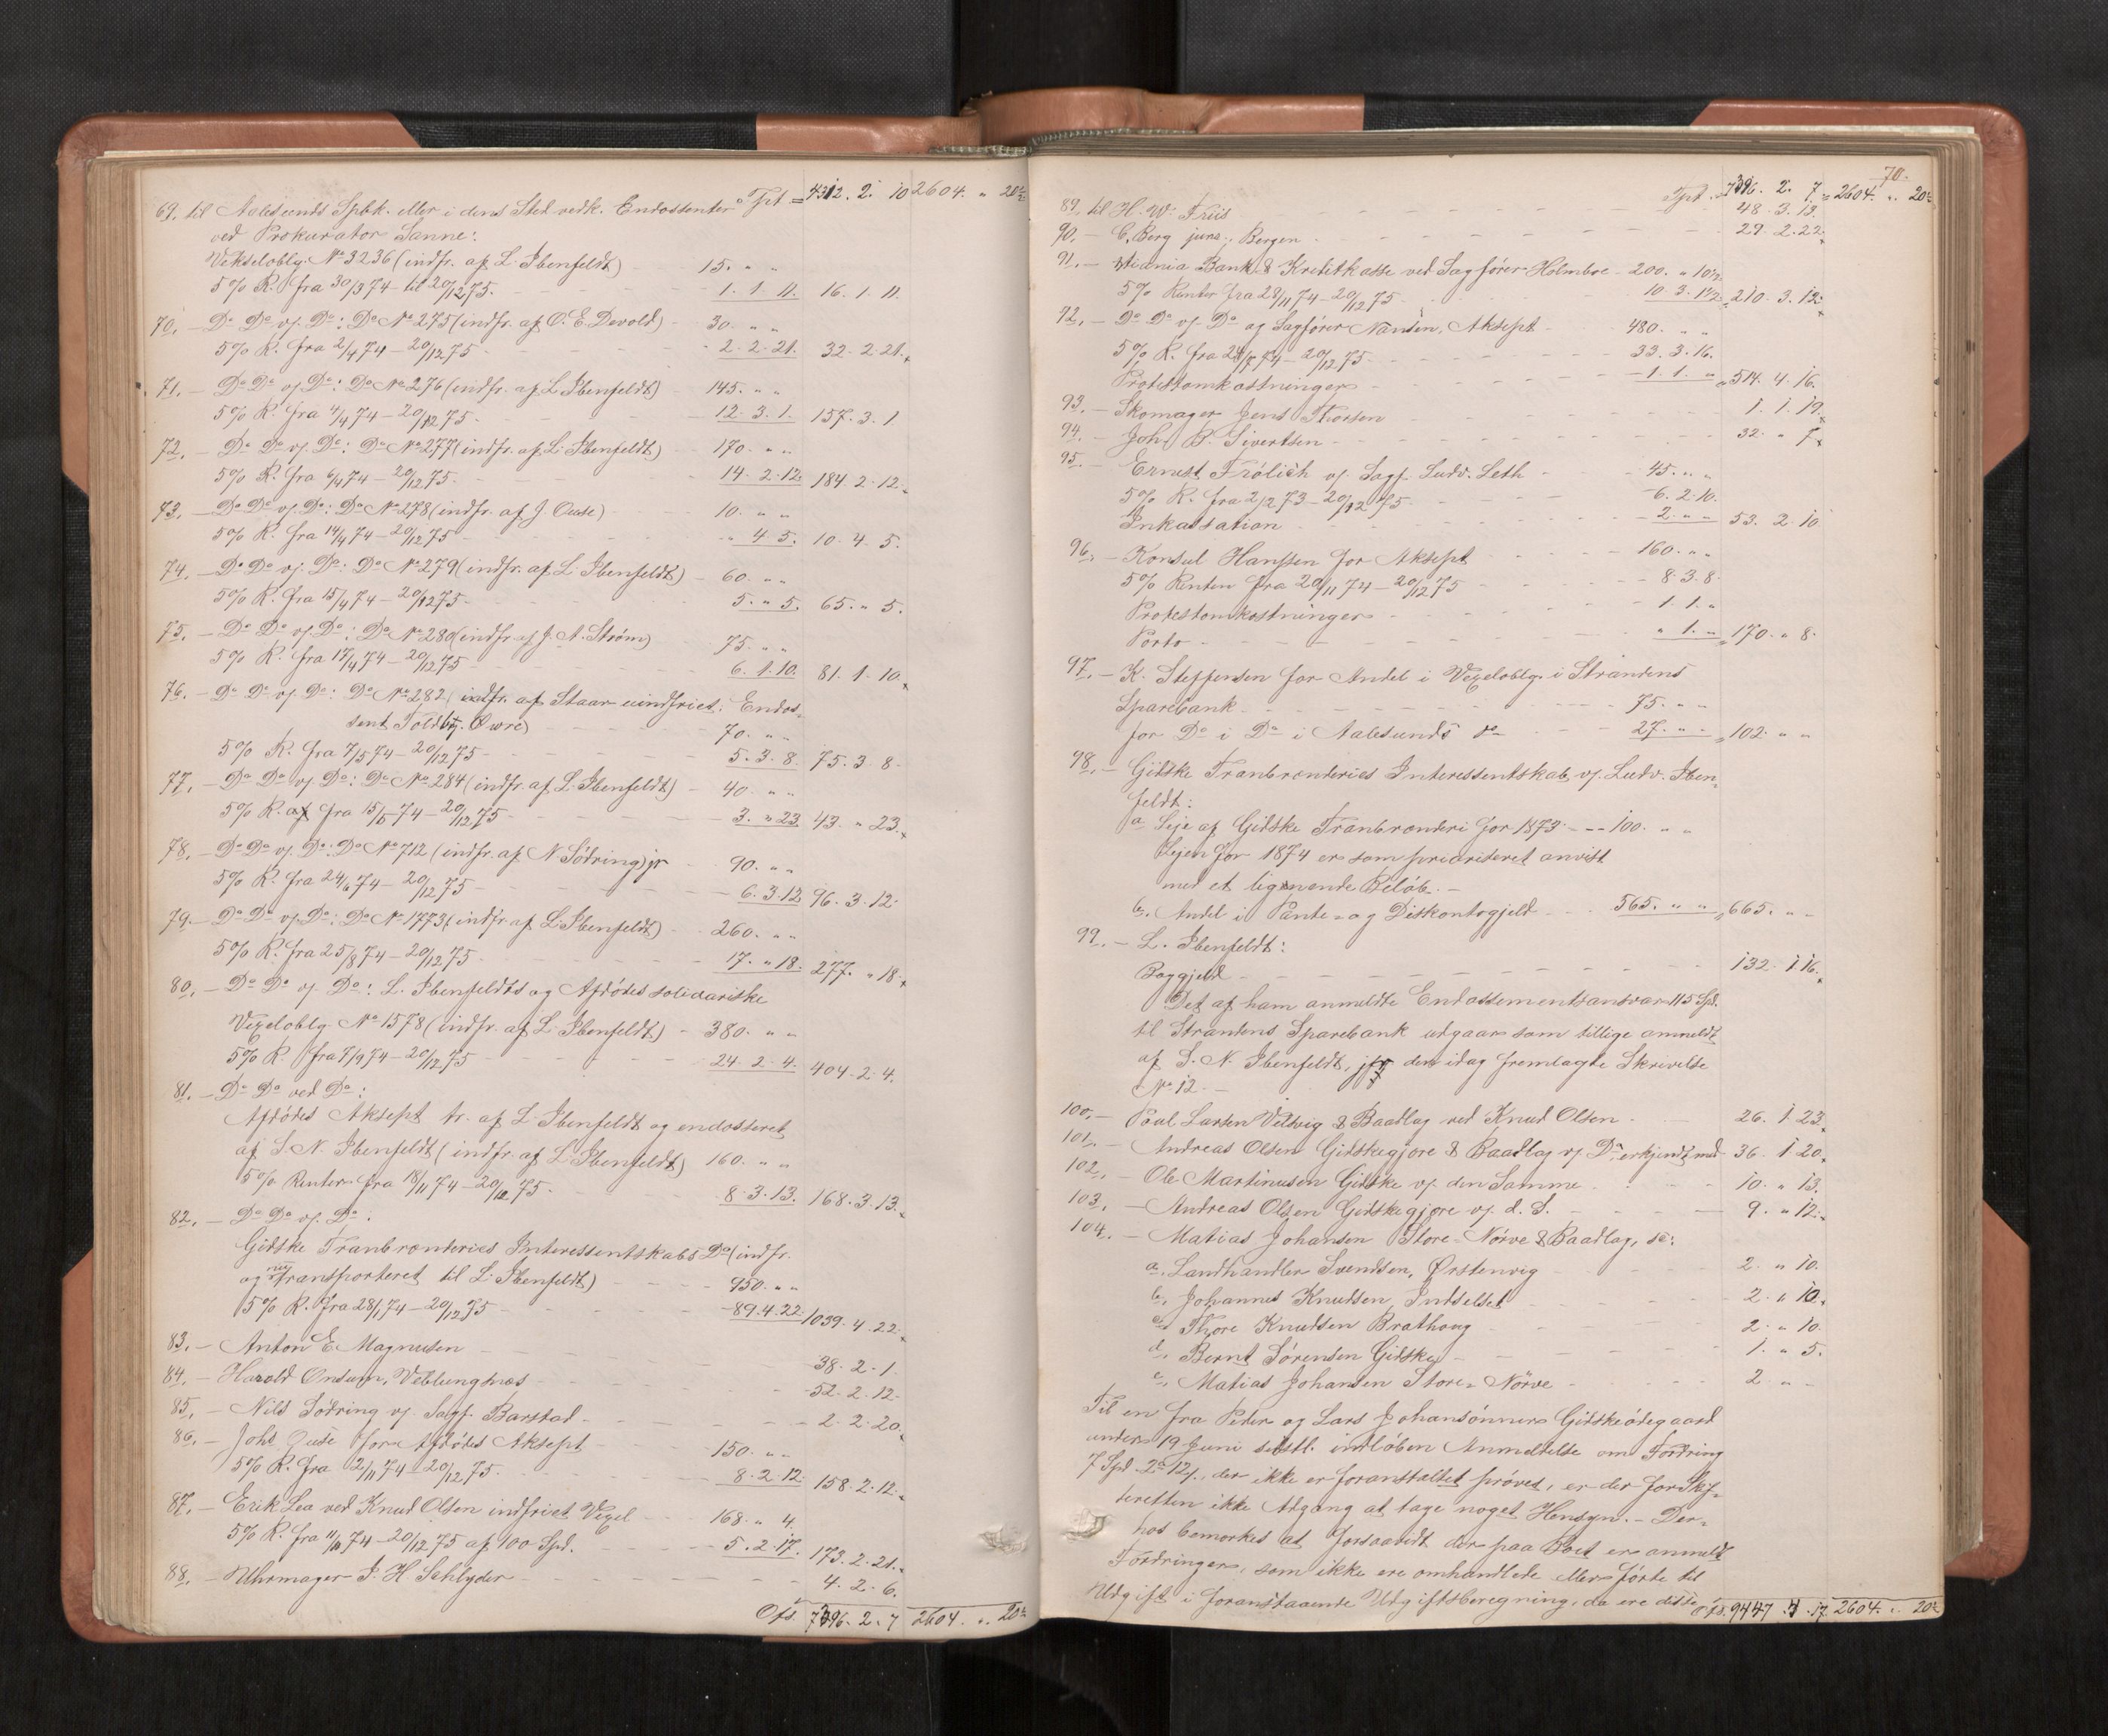 69. til Aalesunds Spbk. eller i dens Sted vedk. Endossenter Tpt = 4312. 2. 10 2604. „ 20½
ved Prokurator Sanne:
Vekseloblg. No 3236 (indfr. af L. Ibenfeldt) 15. „ „
5% R. fra 30/3 74 til 20/12 75. 1. 1. 11. 16. 1. 11.
70. – Do Do v. Do: Do No 275 (indfr. af O. E. Devold) 30. „ „
5% R. fra 2/4 74 – 20/12 75. 2. 2. 21. 32. 2. 21.
71. – Do Do v. Do: Do No 276 (indfr. af L. Ibenfeldt) 145. „ „
5% R. fra 4/4 74 – 20/12 75. 12. 3. 1. 157. 3. 1
72. – Do Do v. Do: Do No 277 (indfr. af L. Ibenfeldt) 170. „ „
5% R. fra 6/4 74 – 20/12 75. 14. 2. 12. 184. 2. 12.
73. – Do Do v. Do: Do No 278 (indfr. af J. Ouse) 10. „ „
5% R. fra 14/4 74 – 20/12 75 „ 4 5. 10. 4. 5.
74. – Do Do v. Do: Do No 279 (indfr. af L. Ibenfeldt) 60. „ „
5% R. fra 15/4 74 – 20/12 75. 5. „ 5. 65. „ 5.
75. – Do Do v. Do: Do No 280 (indfr. af J. A. Strøm) 75. „ „
5% R. fra 17/4 74 – 20/12 75 6. 1. 10. 81. 1. 10.
76. – Do Do v. Do: Do No 282 (indfr. af Staar uindfriet: Endos-
sent Toldbtj. Owre) 70. „ „
5% R. fra 7/5 74 – 20/12 75 5. 3. 8. 75. 3. 8.
77. – Do Do v. Do: Do No 284 (indfr. af L. Ibenfeldt) 40. „ „
5% R. af fra 15/5 74 – 20/12 75 3. „ 23. 43. „ 23.
78. – Do Do v. Do: Do No 712 (indfr. af N Södring) jr 90. „ „
5% R. fra 24/6 74 – 20/12 75 6. 3. 12 96. 3. 12.
79. – Do Do v. Do: Do No 1773 (indfr. af L. Ibenfeldt) 260. „ „
5% R. fra 25/8 74 – 20/12 75 17. „ 18. 277. „ 18.
80. – Do Do v. Do: L. Ibenfeldts og Afdødes solidariske
Vexeloblg. No 1578 (indfr. af L. Ibenfeldt) 380. „ „
5% R. fra 7/9 74 – 20/12 75 24. 2. 4. 404. 2. 4.
81. – Do Do ved Do:
Afdødes Aksept tr. af L Ibenfeldt og endosseret
af S. N. Ibenfeldt (indfr. af L. Ibenfeldt) 160. „ „
5% Renter fra 18/11 74 – 20/12 75. 8. 3. 13. 168. 3. 13.
82. – Do Do v. Do:
Gidske Tranbrænderies Interessentskabs Do (indfr.
og transporteret til L. Ibenfeldt) 950. „ „
5% R. fra 28/1 74 – 20/12 75 89. 4. 22. 1039. 4. 22.
83. – Anton E. Magnusen 38. 2. 1.
84. – Harald Onsum, Veblungsnæs 52. 2. 12.
85. – Nils Södring v. Sagf. Barstad 2. 2. 20.
86. – Johs Ouse for Afdødes Aksept 150. „ „
5% R. fra 2/11 74 – 20/12 75. 8. 2. 12. 158. 2. 12.
87. – Erik Lea ved Knud Olsen indfriet Vexel 168. „ 4.
5% R. fra 11/11 74 – 20/12 75 af 100 Spd. 5. 2. 17. 173. 2. 21.
88. – Uhrmager J. H. Schlyder 4. 2. 6.
Ofs. 7396. 2. 7 2604. „. 20½
70.
Tpt. 7396. 2. 7. 2604. „. 20½
89. til H. W. Friis 48. 3. 13.
90. – C. Berg junr, Bergen 29. 2. 22.
91. – Xtiania Bank & Kreditkasse ved Sagfører Holmboe 200. „ 10½
5% Renter fra 28/11 74 – 20/12 75 10. 3. 1½ 210. 3. 12.
92. – Do Do v. Do og Sagfører Nansen, Aksept 480. „ „
5% R. fra 28/7 74 – 20/12 75 33. 3. 16.
Protestomkostninger 1. 1. „ 514. 4. 16.
93. – Skomager Jens Thorsen 1. 1. 19.
94. – Joh. P. Sivertsen 32. „ 7.
95. – Ernst Frölich v. Sagf. Ludv. Leth 45. „ „
5% R. fra 2/2 73 – 20/12 75 6. 2. 10.
Inkassation 2. „ „ 53. 2. 10
96. – Konsul Hanssen for Aksept 160. „ „
5% Renten fra 20/11 74 – 20/12 75 8. 3. 8.
Protestomkostninger 1. 1. „
Porto „ 1. „ 170. „ 8.
97. – K. Steffensen for Andel i Vexeloblg. i Strandens
Sparebank 75. „ „
for Do i Do i Aalesunds do 27. „ „ 102. „ „
98. – Gidske Tranbrænderies Interessentskab v. Ludv. Iben-
feldt:
a. Leje af Gidske Tranbrænderi for 1873. 100. „ „
Lejen for 1874 er som prioriteret anvist
med et lignende Beløb. –
b. Andel i Pante- og Diskontogjeld 565. „ „ 665. „ „
99. – L. Ibenfeldt:
Boggjeld 132. 1. 16.
Det af ham anmeldte Endossementsansvar 115 Spd.
til Strandens Sparebank udgaar som tillige anmeldt
af S. N. Ibenfeldt, jfr den idag fremlagte Skrivelse
No 12. –
100. – Poul Larsen Veltvig & Baadlag ved Knud Olsen 26. 1. 23.
101. – Andreas Olsen Gidskegjøre & Baadlag v. Do, erkjendt med 36. 1. 20.
102. – Ole Martinusen Gidske v. den Samme 10. „ 13.
103. – Andreas Olsen Gidskegjøre v. d. S. 9. „ 12.
104. – Matias Johansen Store-Nørve & Baadlag, sc:
a. Landhandler Svendsen, Ørstenvig 2. „ 10.
b. Johannes Knudsen Indselset 2. „ 10.
c. Thore Knudsen Brathoug 2. „ 10.
d. Bernt Sørensen Gidske 1. „ 5.
e. Matias Johansen Store-Nørve 2. „ –
Til en fra Peder og Lars Johansønner Gidskeødegaard
under 19 Juni sidstl. indløben Anmeldelse om Fordring
7 Spd. 2 12 s, der ikke er foranstaltet prøvet, er der for Skif-
teretten ikke Adgang at tage noget Hensyn. – Der-
hos bemærkes at forsaavidt der paa Boet er anmeldt
Fordringer, som ikke ere omhandlede eller førte til
Udgift i foranstaaende Udgiftsberegning, da ere disse
Ofs. 9447. 4. 17. 2604. „. 20½